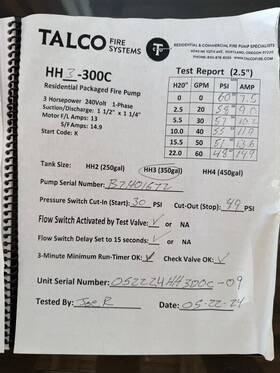 TALCO FIRE SYSTEMS
RESIDENTIAL & COMMERCIAL FIRE PUMP SPECIALISTS
www.talcofire.com
HH3-300C
Residential Packaged Fire Pump
3 Horsepower 240Volt 1-Phase
Suction/Discharge: 1 1/2" x 1 1/4"
Motor F/L Amps: 13
S/F Amps: 14.9
Start Code: K
Test Report (2.5")
H20" GPM PSI AMP
0 0 60 7.5
2.5 20 55 9.0
5.5 30 57 10.2
10.0 40 55 11.9
15.5 50 51 13.6
22.0 60 48 14.9
Tank Size: HH2 (250gal) HH3 (350gal) HH4 (450gal)
Pump Serial Number:
Pressure Switch Cut-In (Start): 30 PSI Cut-Out (Stop): 49 PSI
Flow Switch Activated by Test Valve: ✓ or NA
Flow Switch Delay Set to 15 seconds: ✓ or NA
3-Minute Minimum Run-Timer OK: ✓ Check Valve OK: ✓
Unit Serial Number: 052224HH300C-09
Tested By: Joe R Date: 05-22-24